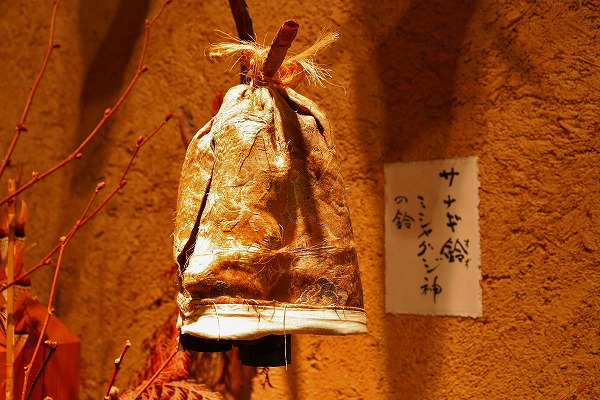 サナギ鈴
ミシャグジ神
の鈴